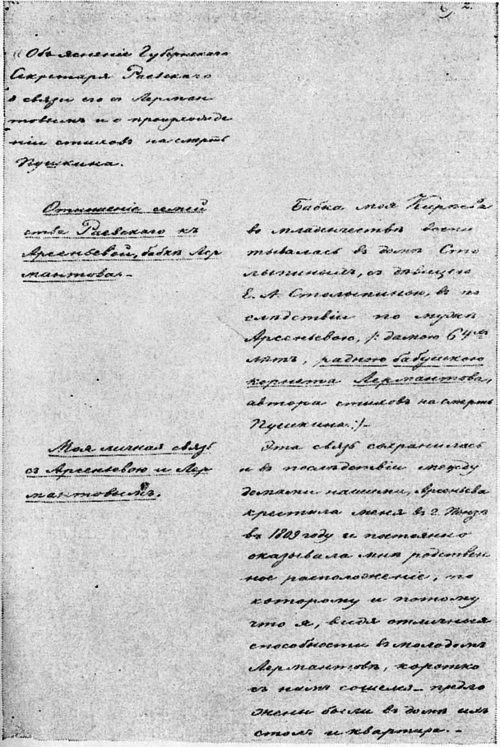 2.
«Объясненіе Губернскаго
Секретаря Раевскаго
о связи его съ Лерман
товымъ и о происхожде
ніи стиховъ на смерть
Пушкина.
Отношеніе семей
ства Раевскаго къ
Арсеньевой, бабкѣ Лер
мантова.-
Бабка моя Кирѣева
во младенчествѣ воспи
тывалась въ домѣ Сто
лыпиныхъ, съ дѣвицею
Е. А. Столыпиною, въ по
слѣдствіи по мужѣ
Арсеньевою, /: дамою 64хъ
лѣтъ, родною бабушкою
корнета Лермантова,
автора стиховъ на смерть
Пушкина.:/-
Моя личная связь
съ Арсеньевою и Лер
мантовымъ.
Эта связь сохранилась
и въ послѣдствіи между
домами нашими, Арсеньева
крестила меня въ г. Пензѣ
въ 1809 году и постоянно
оказывала мнѣ родствен
ное расположеніе, по
которому и потому
что я, видя отличныя
способности въ молодомъ
Лермантовѣ, коротко
съ нимъ сошелся - предло
жены были въ домѣ ихъ
столъ и квартира.-